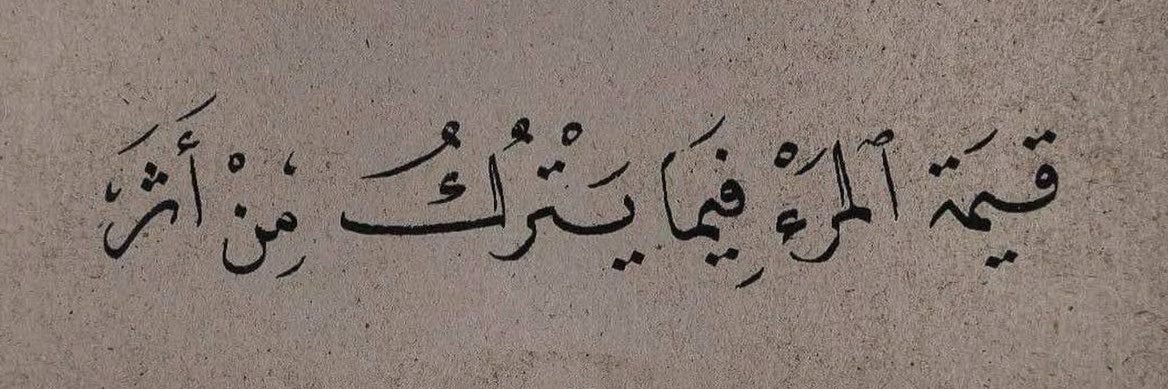 قيمَة ٱلمرَْء فِيمَا يَتْرُكُ مِنْ أَثَر